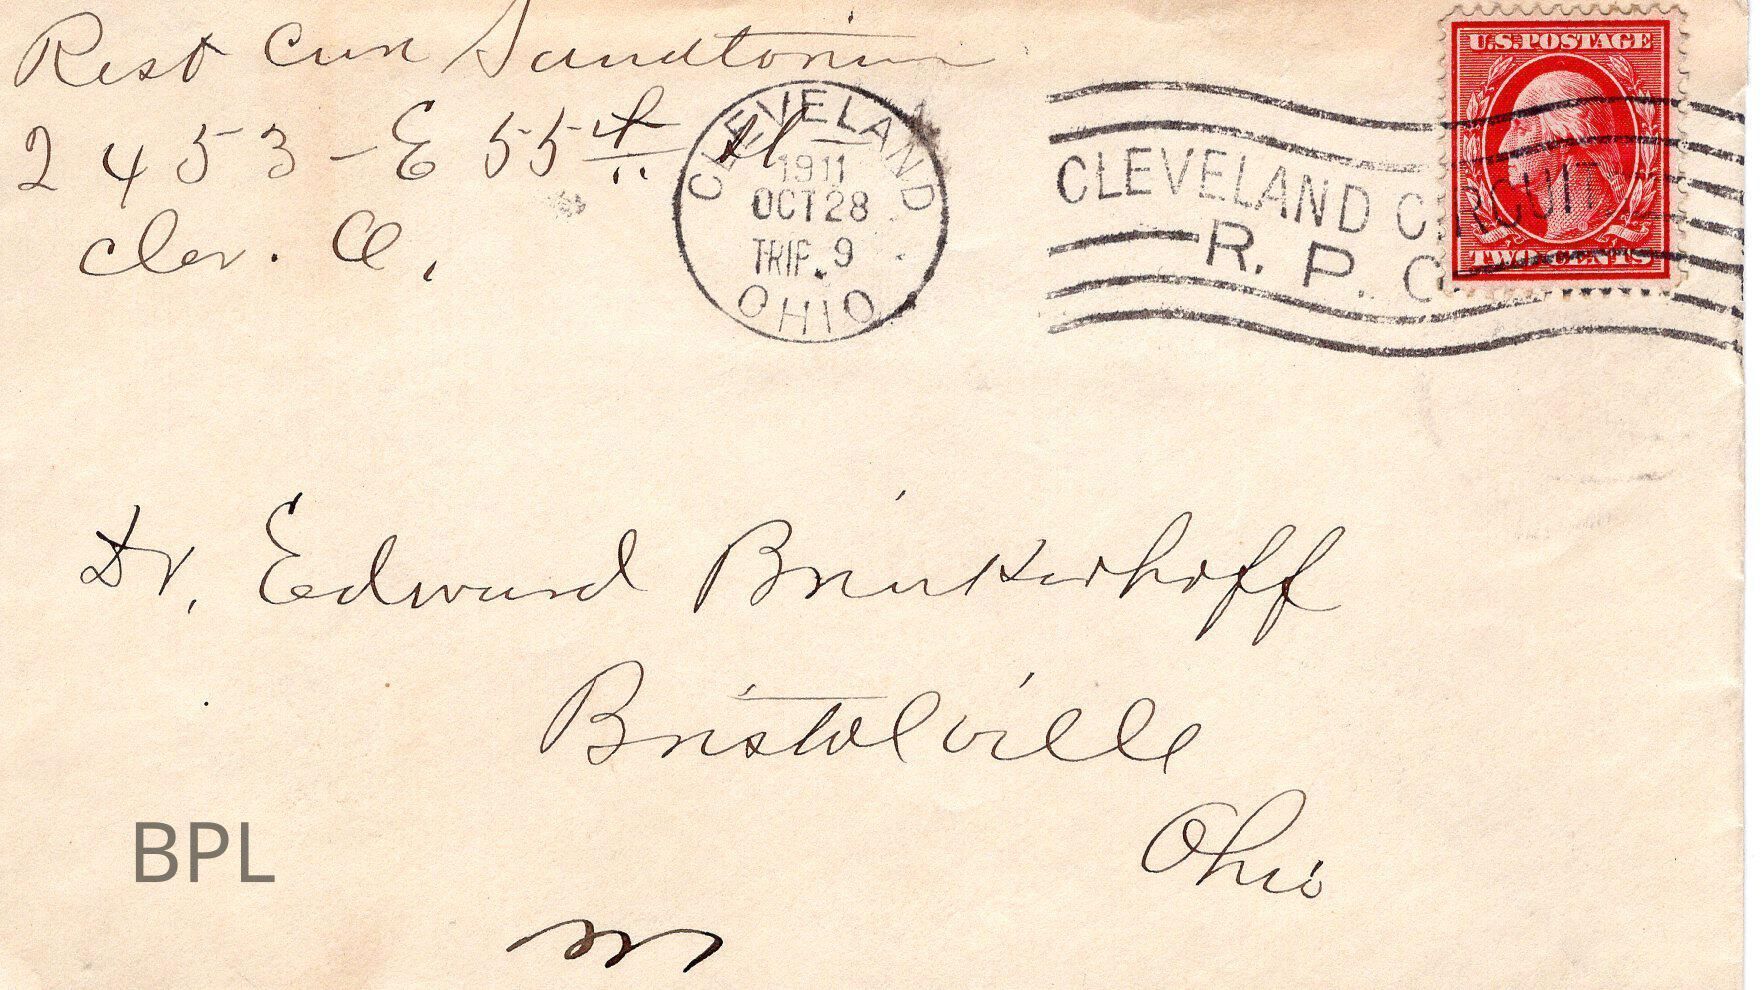 Rest Cure Sanatorium
2453 - E 55th St
Clev. O.
CLEVELAND
1911
OCT 28
TRIP. 9
OHIO
CLEVELAND CIRCUIT
R. P. O.
U.S. POSTAGE
TWO CENTS
Dr. Edward Brinkerhoff
Bristolville
Ohio
BPL